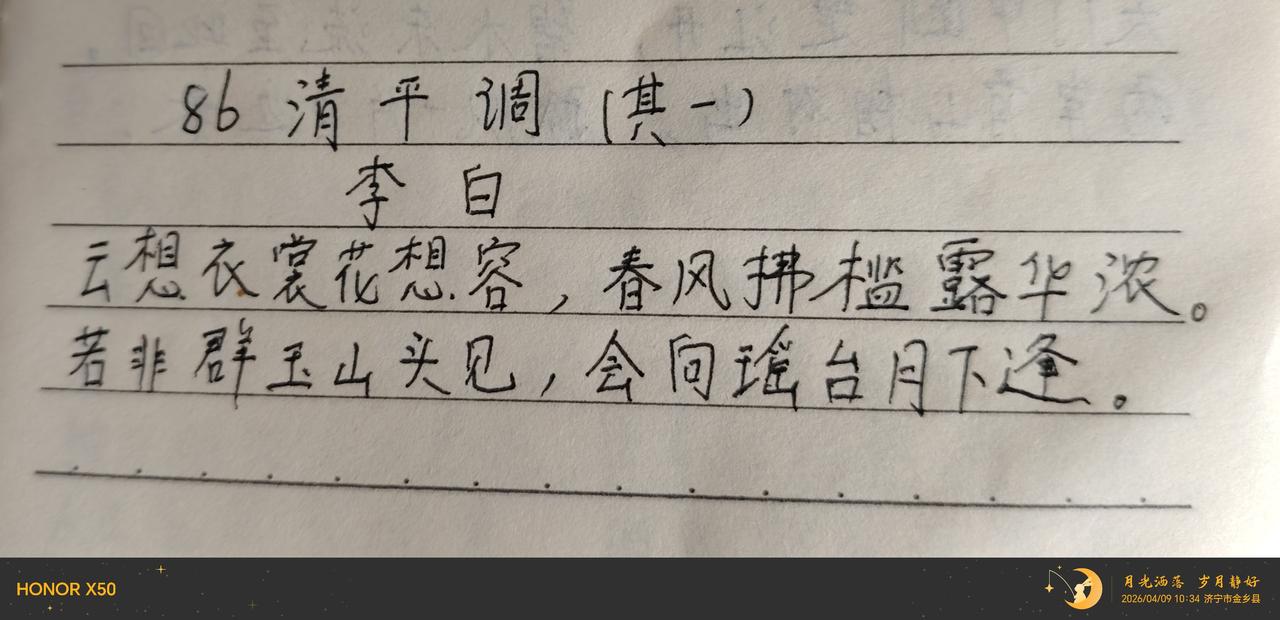 86 清平调(其一)
李白
云想衣裳花想容,春风拂槛露华浓。
若非群玉山头见,会向瑶台月下逢。
HONOR X50
月光洒落 岁月静好
2026/04/09 10:34 济宁市金乡县